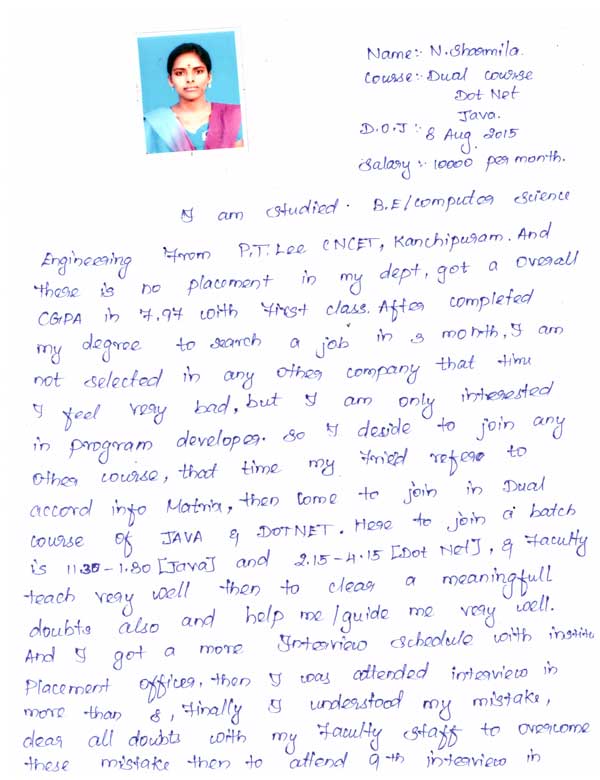 Name:- N. Sharmila.
Course:- Dual course
Dot Net
Java.
D.O.J :- 8 Aug 2015
Salary :- 10000 per month.
I am studied. B.E/computer science
Engineering From P.T. Lee CNCET, Kanchipuram. And
there is no placement in my dept, got a overall
CGPA in 7.97 with First class. After completed
my degree to search a job in 3 month, I am
not selected in any other company that time
I feel very bad, but I am only interested
in program developer. so I deside to join any
other course, that time my Fried refere to
accord info Matrix, then come to join in Dual
course of JAVA & DOTNET. Here to join a batch
is 11.30-1.30 [Java] and 2.15-4.15 [Dot Net], & Faculty
teach very well then to clear a meaningfull
doubts also and help me/guide me very well.
And I got a more Interview schedule with institu
Placement officer, then I was attended interview in
more than 8, Finally I understood my mistake,
clear all doubts with my Faculty staff to overcome
these mistake then to attend 9th interview in